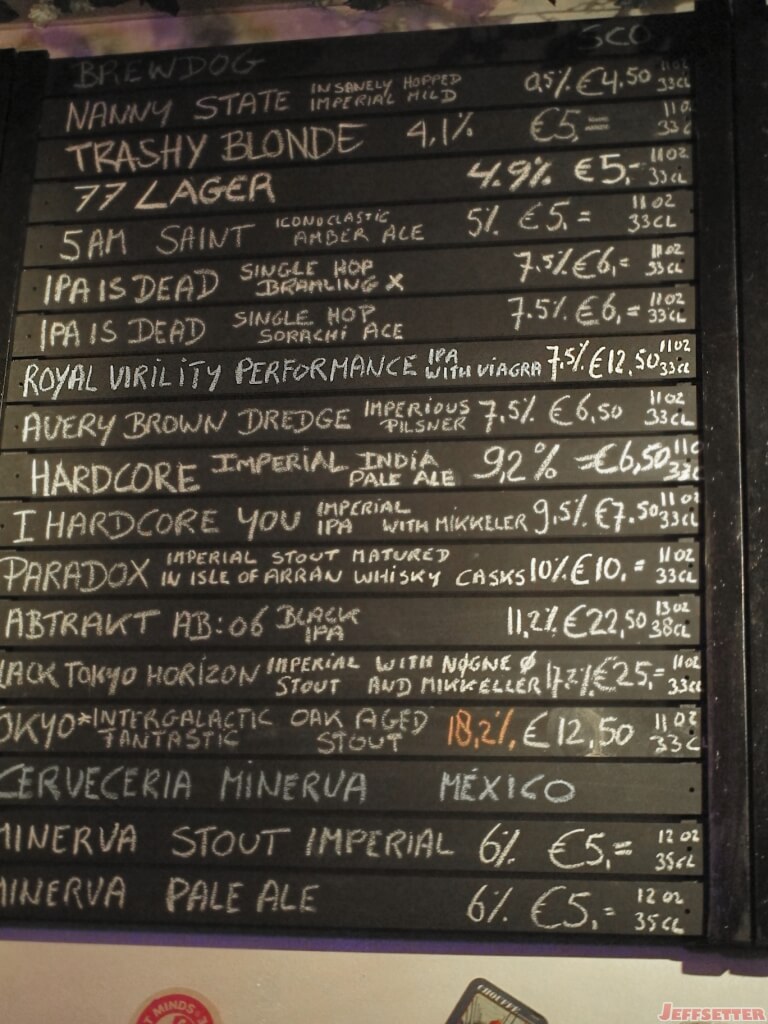 BREWDOG SCO
NANNY STATE INSANELY HOPPED IMPERIAL MILD 0,5% €4.50 11 OZ 33CL
TRASHY BLONDE 4,1% €5,= 11 OZ 33CL
77 LAGER 4.9% €5,- 11 OZ 33CL
5AM SAINT ICONOCLASTIC AMBER ALE 5% €5,= 11 OZ 33CL
IPA IS DEAD SINGLE HOP BRAMLING X 7.5% €6,= 11 OZ 33CL
IPA IS DEAD SINGLE HOP SORACHI ACE 7.5% €6,= 11 OZ 33CL
ROYAL VIRILITY PERFORMANCE IPA WITH VIAGRA 7,5% €12,50 11 OZ 33CL
AVERY BROWN DREDGE IMPERIOUS PILSNER 7,5% €6,50 11 OZ 33CL
HARDCORE IMPERIAL INDIA PALE ALE 9,2% €6,50 11 33
I HARDCORE YOU IMPERIAL IPA WITH MIKKELER 9,5% €7.50 11 OZ 33CL
PARADOX IMPERIAL STOUT MATURED IN ISLE OF ARRAN WHISKY CASKS 10% €10,= 11 OZ 33CL
ABTRAKT AB:06 BLACK IPA 11,2% €22,50 13 OZ 38CL
LACK TOKYO HORIZON IMPERIAL STOUT WITH NØGNE Ø AND MIKKELLER 17,2% €25,= 11 OZ 33CL
OKYO* INTERGALACTIC FANTASTIC OAK AGED STOUT 18,2% €12,50 11 OZ 33CL
CERVECERIA MINERVA MÉXICO
MINERVA STOUT IMPERIAL 6% €5,= 12 OZ 35CL
MINERVA PALE ALE 6% €5,= 12 OZ 35CL
T MINDS
CHOUFFE
JEFFSETTER